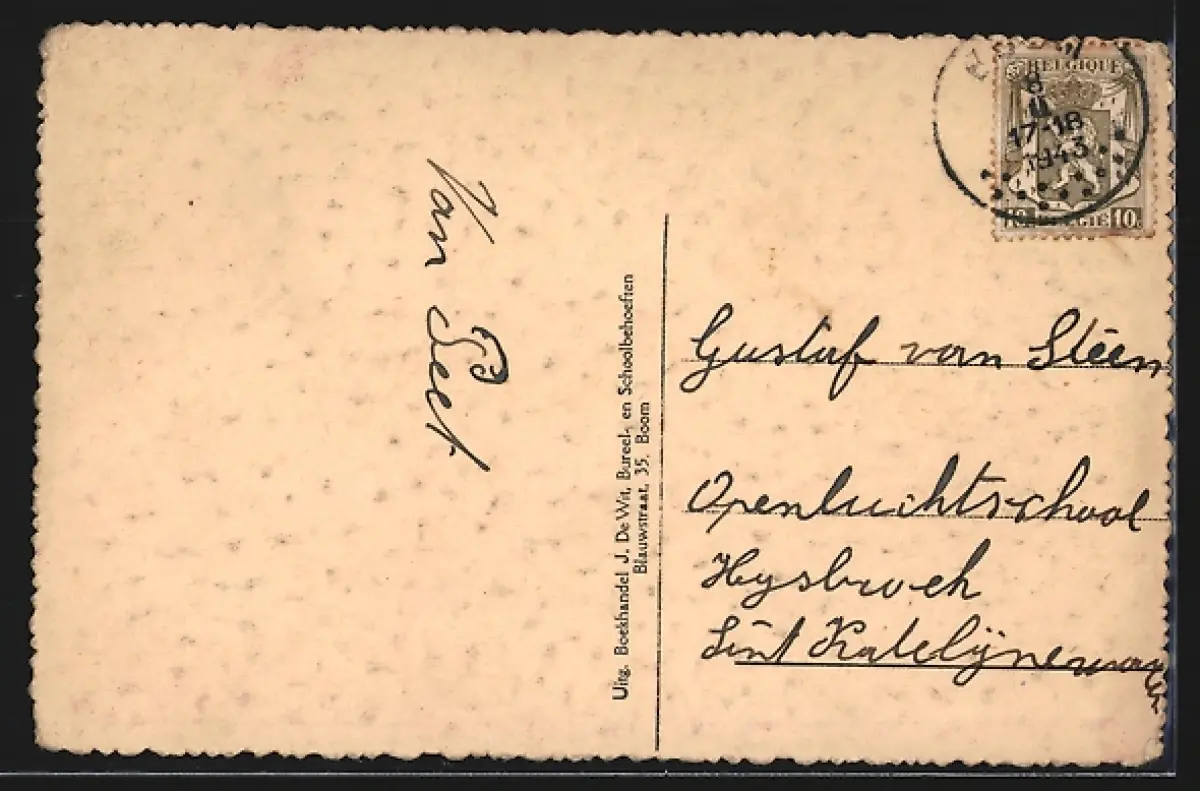 Van Peet.
Uitg. Boekhandel J. De Wit, Bureel- en Schoolbehoeften
Blauwstraat, 35, Boom
BELGIQUE
8
II
17-18
1943
10. BELGIE 10.
Gustaf van Steen
Openluchtschool
Hysbroek
Sint Katelijnewav